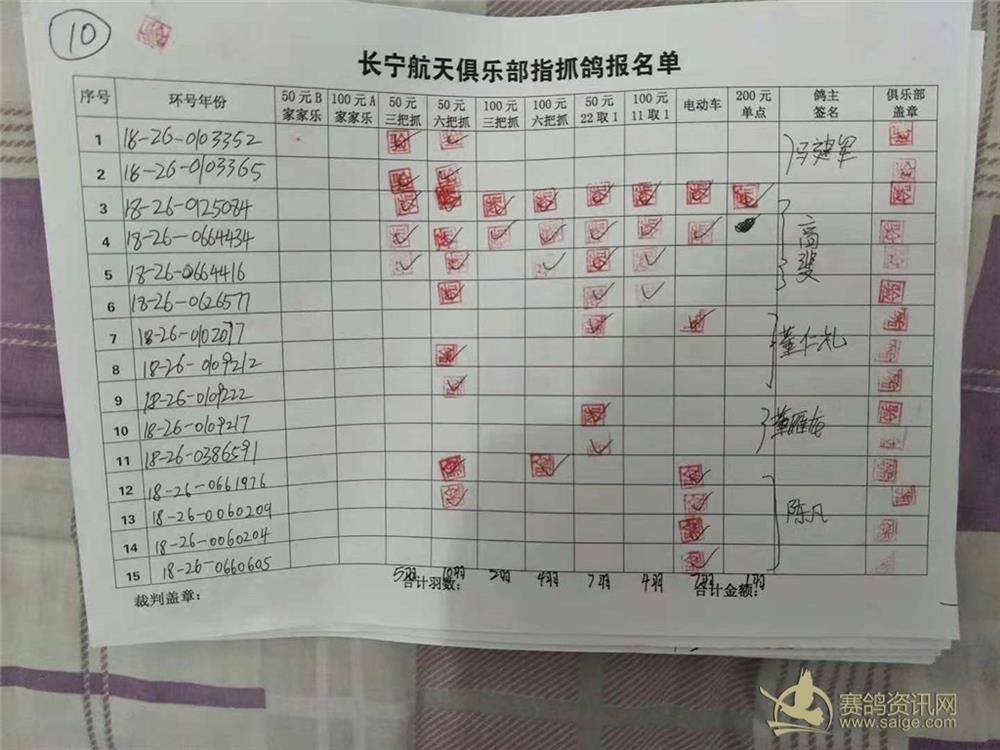 10
长宁航天俱乐部指抓鸽报名单
序号 环号年份 50元B家家乐 100元A家家乐 50元三把抓 50元六把抓 100元三把抓 100元六把抓 50元22取1 100元11取1 电动车 200元单点 鸽主签名 俱乐部盖章
1 18-26-0103352
2 18-26-0103365
3 18-26-0125084
4 18-26-0664434 高斐
5 18-26-0664416
6 18-26-0626577
7 18-26-0102017 董仁礼
8 18-26-0109212
9 18-26-0109222
10 18-26-0109217 董雁
11 18-26-0386591
12 18-26-0661926
13 18-26-0060209 陈凡
14 18-26-0060204
15 18-26-0660605
5羽 10羽 2羽 4羽 7羽 4羽 7羽 1羽
裁判盖章: 合计羽数: 合计金额:
赛鸽资讯网
www.saige.com